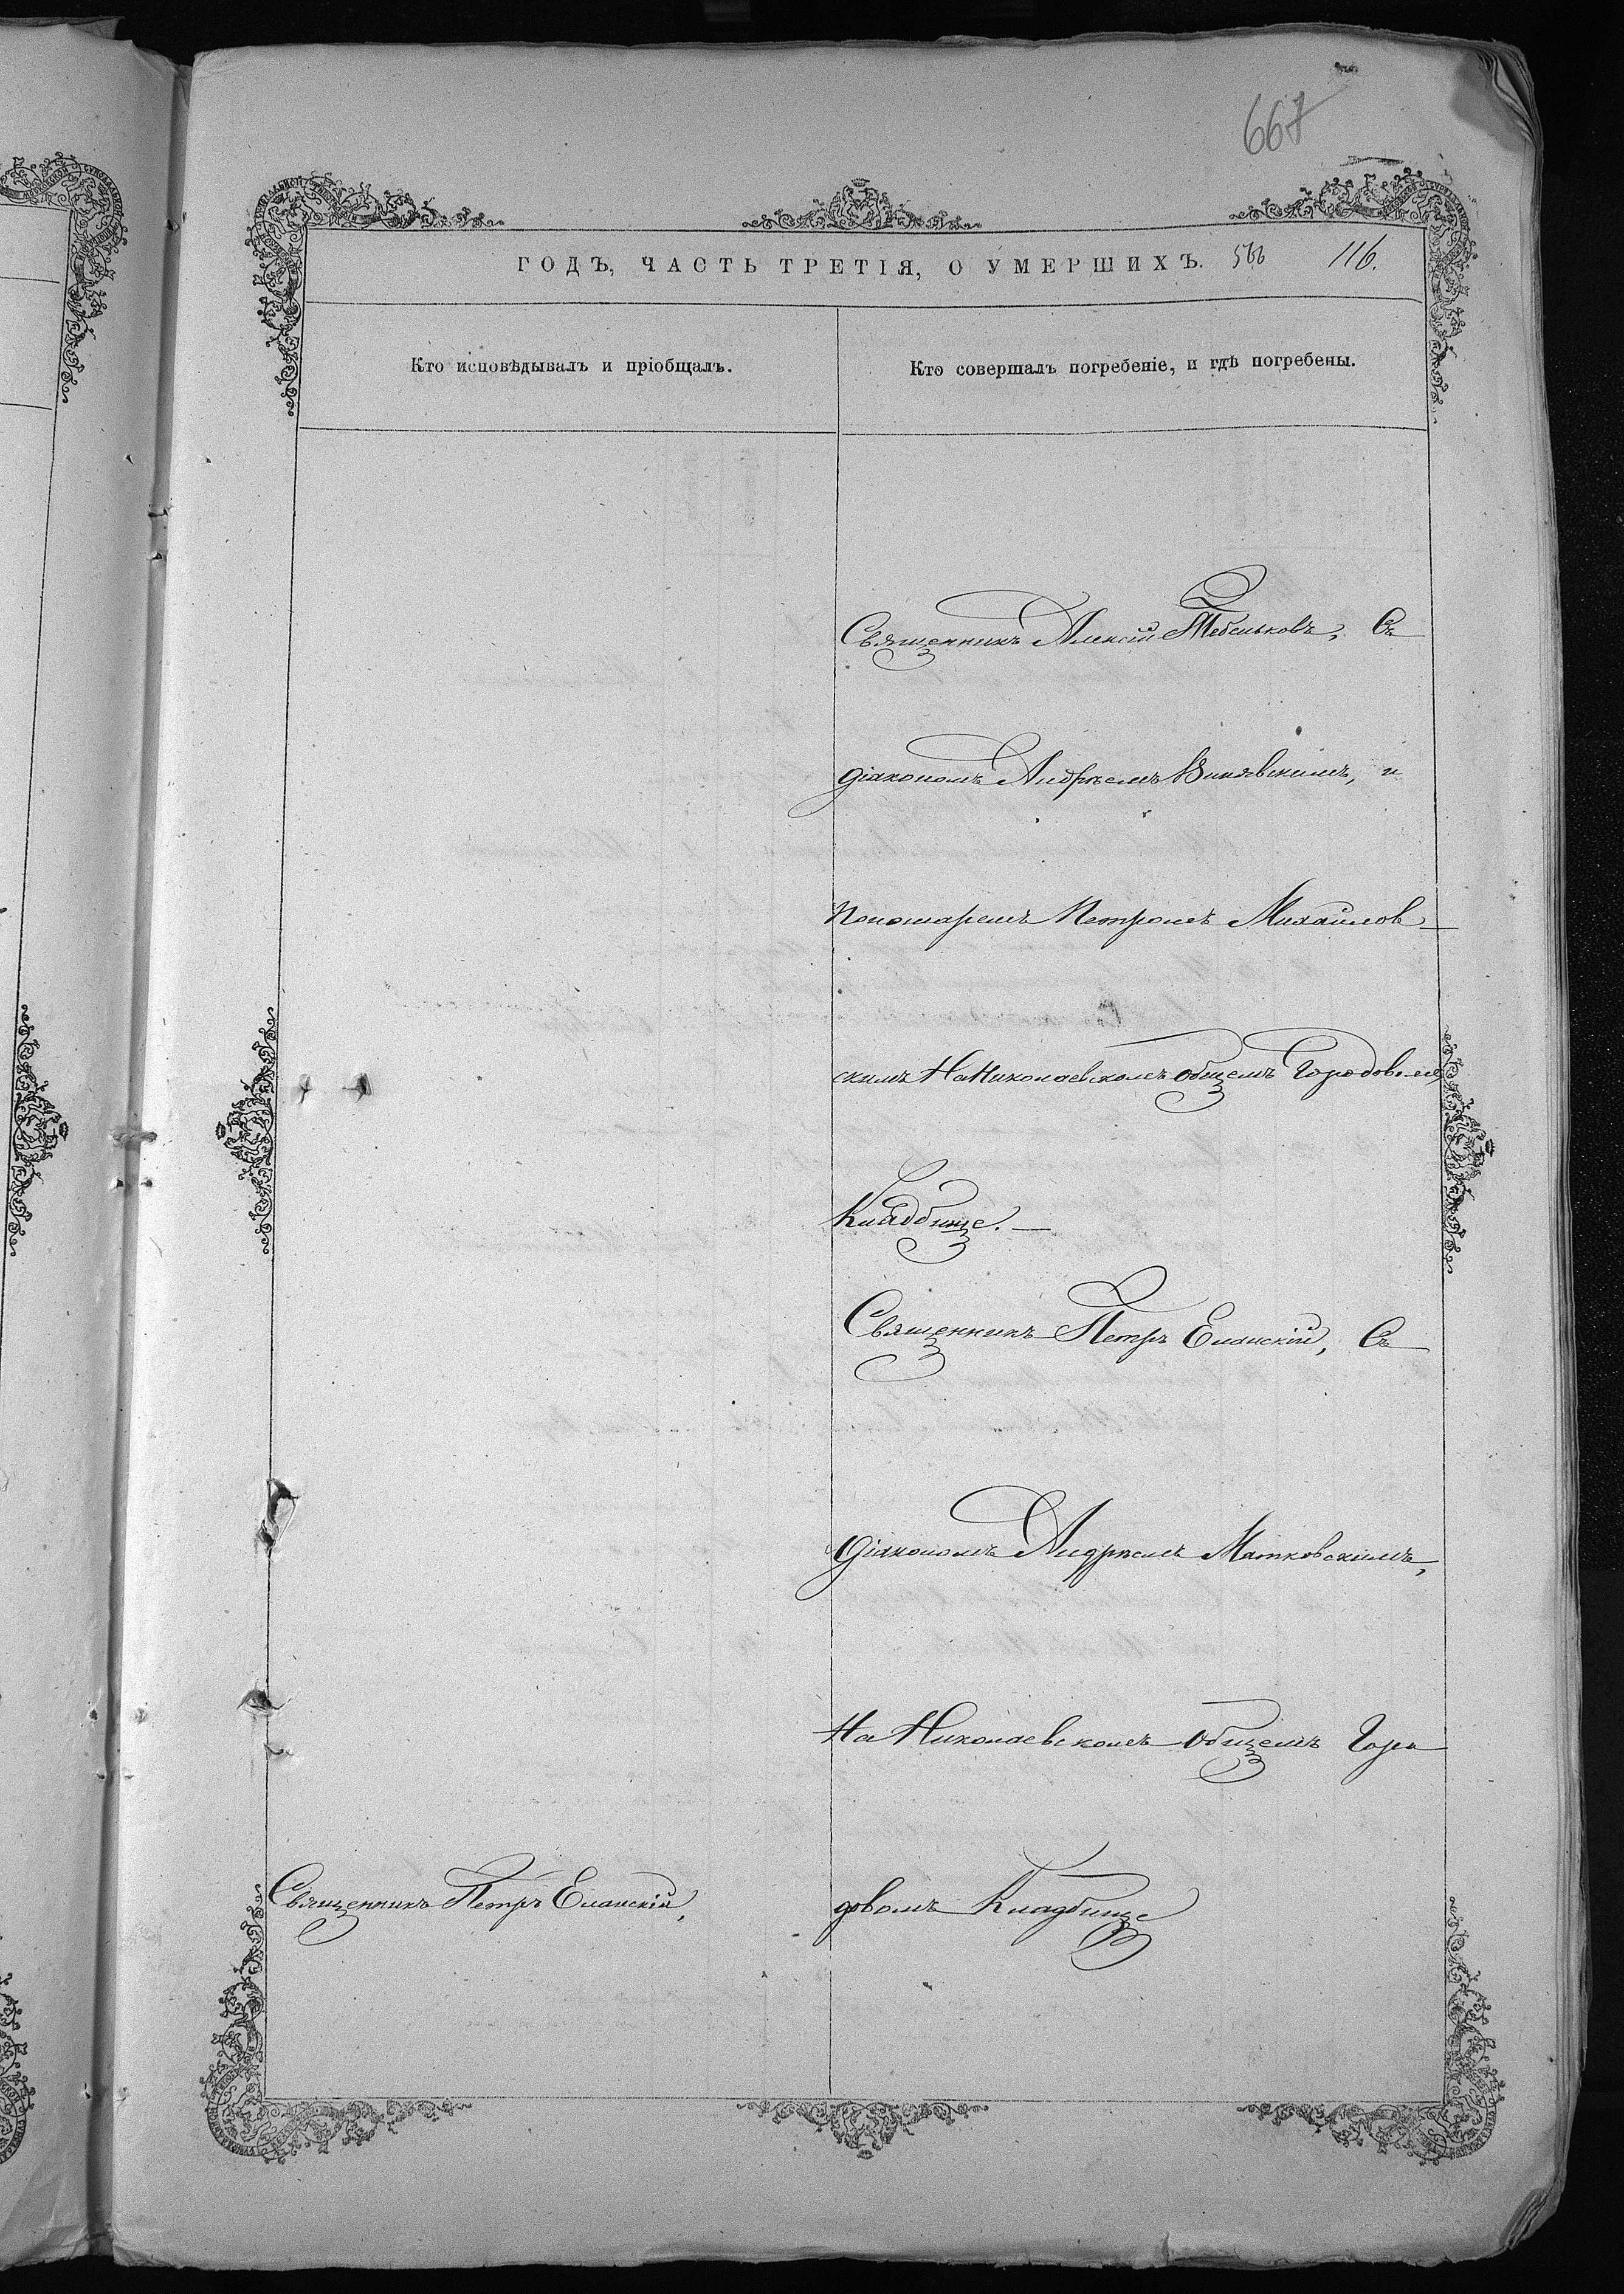 667
ГОДЪ, ЧАСТЬ ТРЕТІЯ, О УМЕРШИХЪ. 566 116.
Кто исповѣдывалъ и пріобщалъ.
Кто совершалъ погребеніе, и гдѣ погребены.
Священникъ Алексій Тебеньковъ, Съ
діакономъ Андреемъ и
Пономаремъ Петромъ Михайлов-
скимъ На Николаевскомъ общемъ Городовомъ
Кладбище. —
Священникъ Петръ Еланскій, Съ
Діакономъ Андреемъ Матковскимъ,
На Николаевскомъ общемъ Горо
Священникъ Петръ Еланскій,
довомъ Кладбище